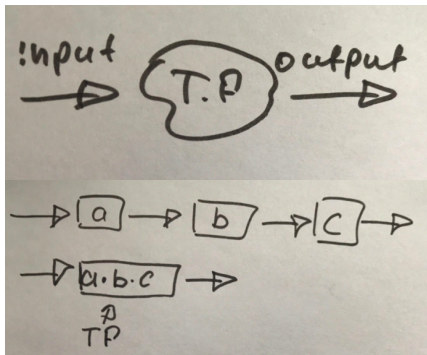 input T.P output
a b c
a.b.c
TP